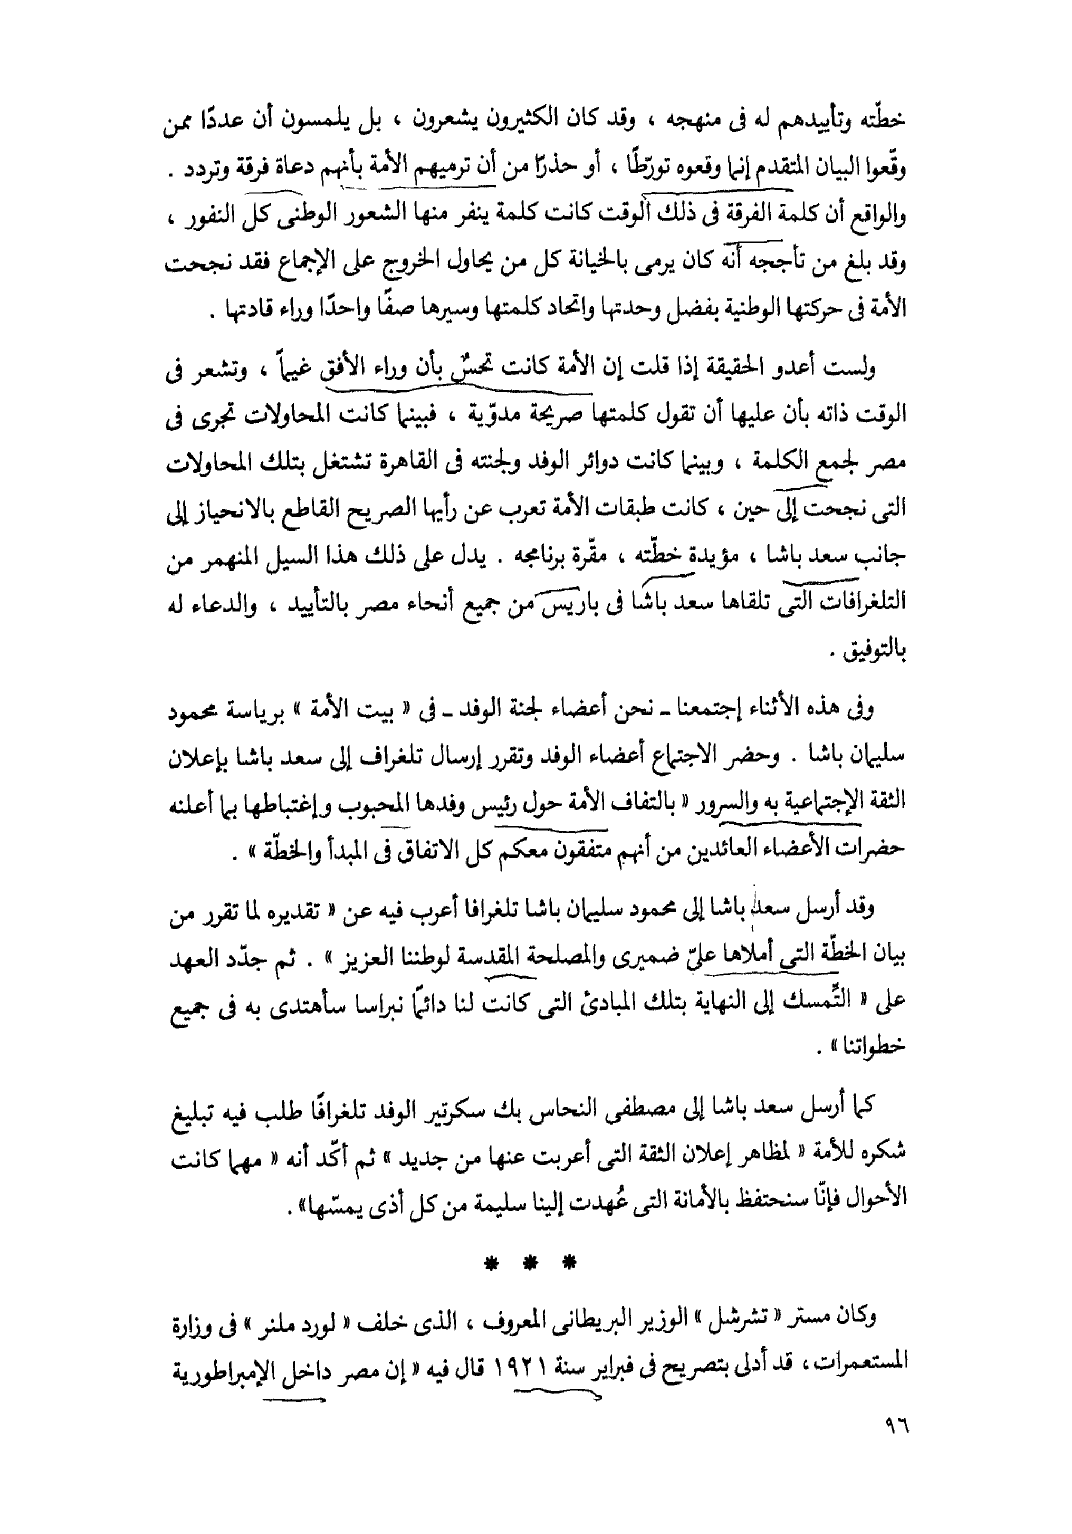 خطّته وتأييدهم له فى منهجه ، وقد كان الكثيرون يشعرون ، بل يلمسون أن عددًا ممن
وقّعوا البيان المتقدم إنما وقعوه تورّطًا ، أو حذرًا من أن ترميهم الأمة بأنهم دعاة فرقة وتردد .
والواقع أن كلمة الفرقة فى ذلك الوقت كانت كلمة ينفر منها الشعور الوطنى كل النفور ،
وقد بلغ من تأججه أنه كان يرمى بالخيانة كل من يحاول الخروج على الإجماع فقد نجحت
الأمة فى حركتها الوطنية بفضل وحدتها واتحاد كلمتها وسيرها صفًا واحدًا وراء قادتها .
ولست أعدو الحقيقة إذا قلت إن الأمة كانت تحسّ بأن وراء الأفق غيماً ، وتشعر فى
الوقت ذاته بأن عليها أن تقول كلمتها صريحة مدوّية ، فبينما كانت المحاولات تجرى فى
مصر لجمع الكلمة ، وبينما كانت دوائر الوفد ولجنته فى القاهرة تشتغل بتلك المحاولات
التى نجحت إلى حين ، كانت طبقات الأمة تعرب عن رأيها الصريح القاطع بالانحياز إلى
جانب سعد باشا ، مؤيدة خطّته ، مقّرة برنامجه . يدل على ذلك هذا السيل المنهمر من
التلغرافات التى تلقاها سعد باشا فى باريس من جميع أنحاء مصر بالتأييد ، والدعاء له
بالتوفيق .
وفى هذه الأثناء إجتمعنا ــ نحن أعضاء لجنة الوفد ــ فى « بيت الأمة » برياسة محمود
سليمان باشا . وحضر الاجتماع أعضاء الوفد وتقرر إرسال تلغراف إلى سعد باشا بإعلان
الثقة الإجتماعية به والسرور « بالتفاف الأمة حول رئيس وفدها المحبوب وإغتباطها بما أعلنه
حضرات الأعضاء العائدين من أنهم متفقون معكم كل الاتفاق فى المبدأ والخطّة » .
وقد أرسل سعد باشا إلى محمود سليمان باشا تلغرافا أعرب فيه عن « تقديره لما تقرر من
بيان الخطّة التى أملاها علىّ ضميرى والمصلحة المقدسة لوطننا العزيز » . ثم جدّد العهد
على « التّمسك إلى النهاية بتلك المبادئ التى كانت لنا دائمًا نبراسا سأهتدى به فى جميع
خطواتنا » .
كما أرسل سعد باشا إلى مصطفى النحاس بك سكرتير الوفد تلغرافًا طلب فيه تبليغ
شكره للأمة « لمظاهر إعلان الثقة التى أعربت عنها من جديد » ثم أكّد أنه « مهما كانت
الأحوال فإنّا سنحتفظ بالأمانة التى عُهدت إلينا سليمة من كل أذى يمسّها» .
* * *
وكان مستر « تشرشل » الوزير البريطانى المعروف ، الذى خلف « لورد ملنر » فى وزارة
المستعمرات ، قد أدلى بتصريح فى فبراير سنة ١٩٢١ قال فيه « إن مصر داخل الإمبراطورية
٩٦